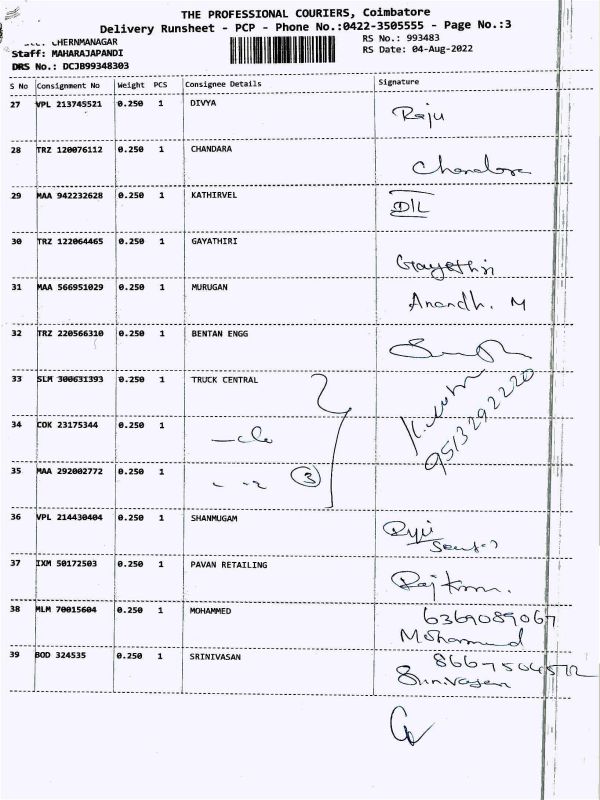 THE PROFESSIONAL COURIERS, Coimbatore
Delivery Runsheet - PCP - Phone No.:0422-3505555 - Page No.:3
CHERNMANAGAR
RS No.: 993483
Staff: MAHARAJAPANDI
RS Date: 04-Aug-2022
DRS No.: DCJB99348303
S No Consignment No Weight PCS Consignee Details Signature
27 VPL 213745521 0.250 1 DIVYA Raju
28 TRZ 120076112 0.250 1 CHANDARA Chandara
29 MAA 942232628 0.250 1 KATHIRVEL D/L
30 TRZ 122064465 0.250 1 GAYATHIRI Gayathri
31 MAA 566951029 0.250 1 MURUGAN Anandh. M
32 TRZ 220566310 0.250 1 BENTAN ENGG
33 SLM 300631393 0.250 1 TRUCK CENTRAL
34 COK 23175344 0.250 1 9513292220
35 MAA 292002772 0.250 1 3
36 VPL 214430404 0.250 1 SHANMUGAM
37 IXM 50172503 0.250 1 PAVAN RETAILING Rajkum.
38 MLM 70015604 0.250 1 MOHAMMED 6369089067
Mohammed
39 BOD 324535 0.250 1 SRINIVASAN
Srinivasan